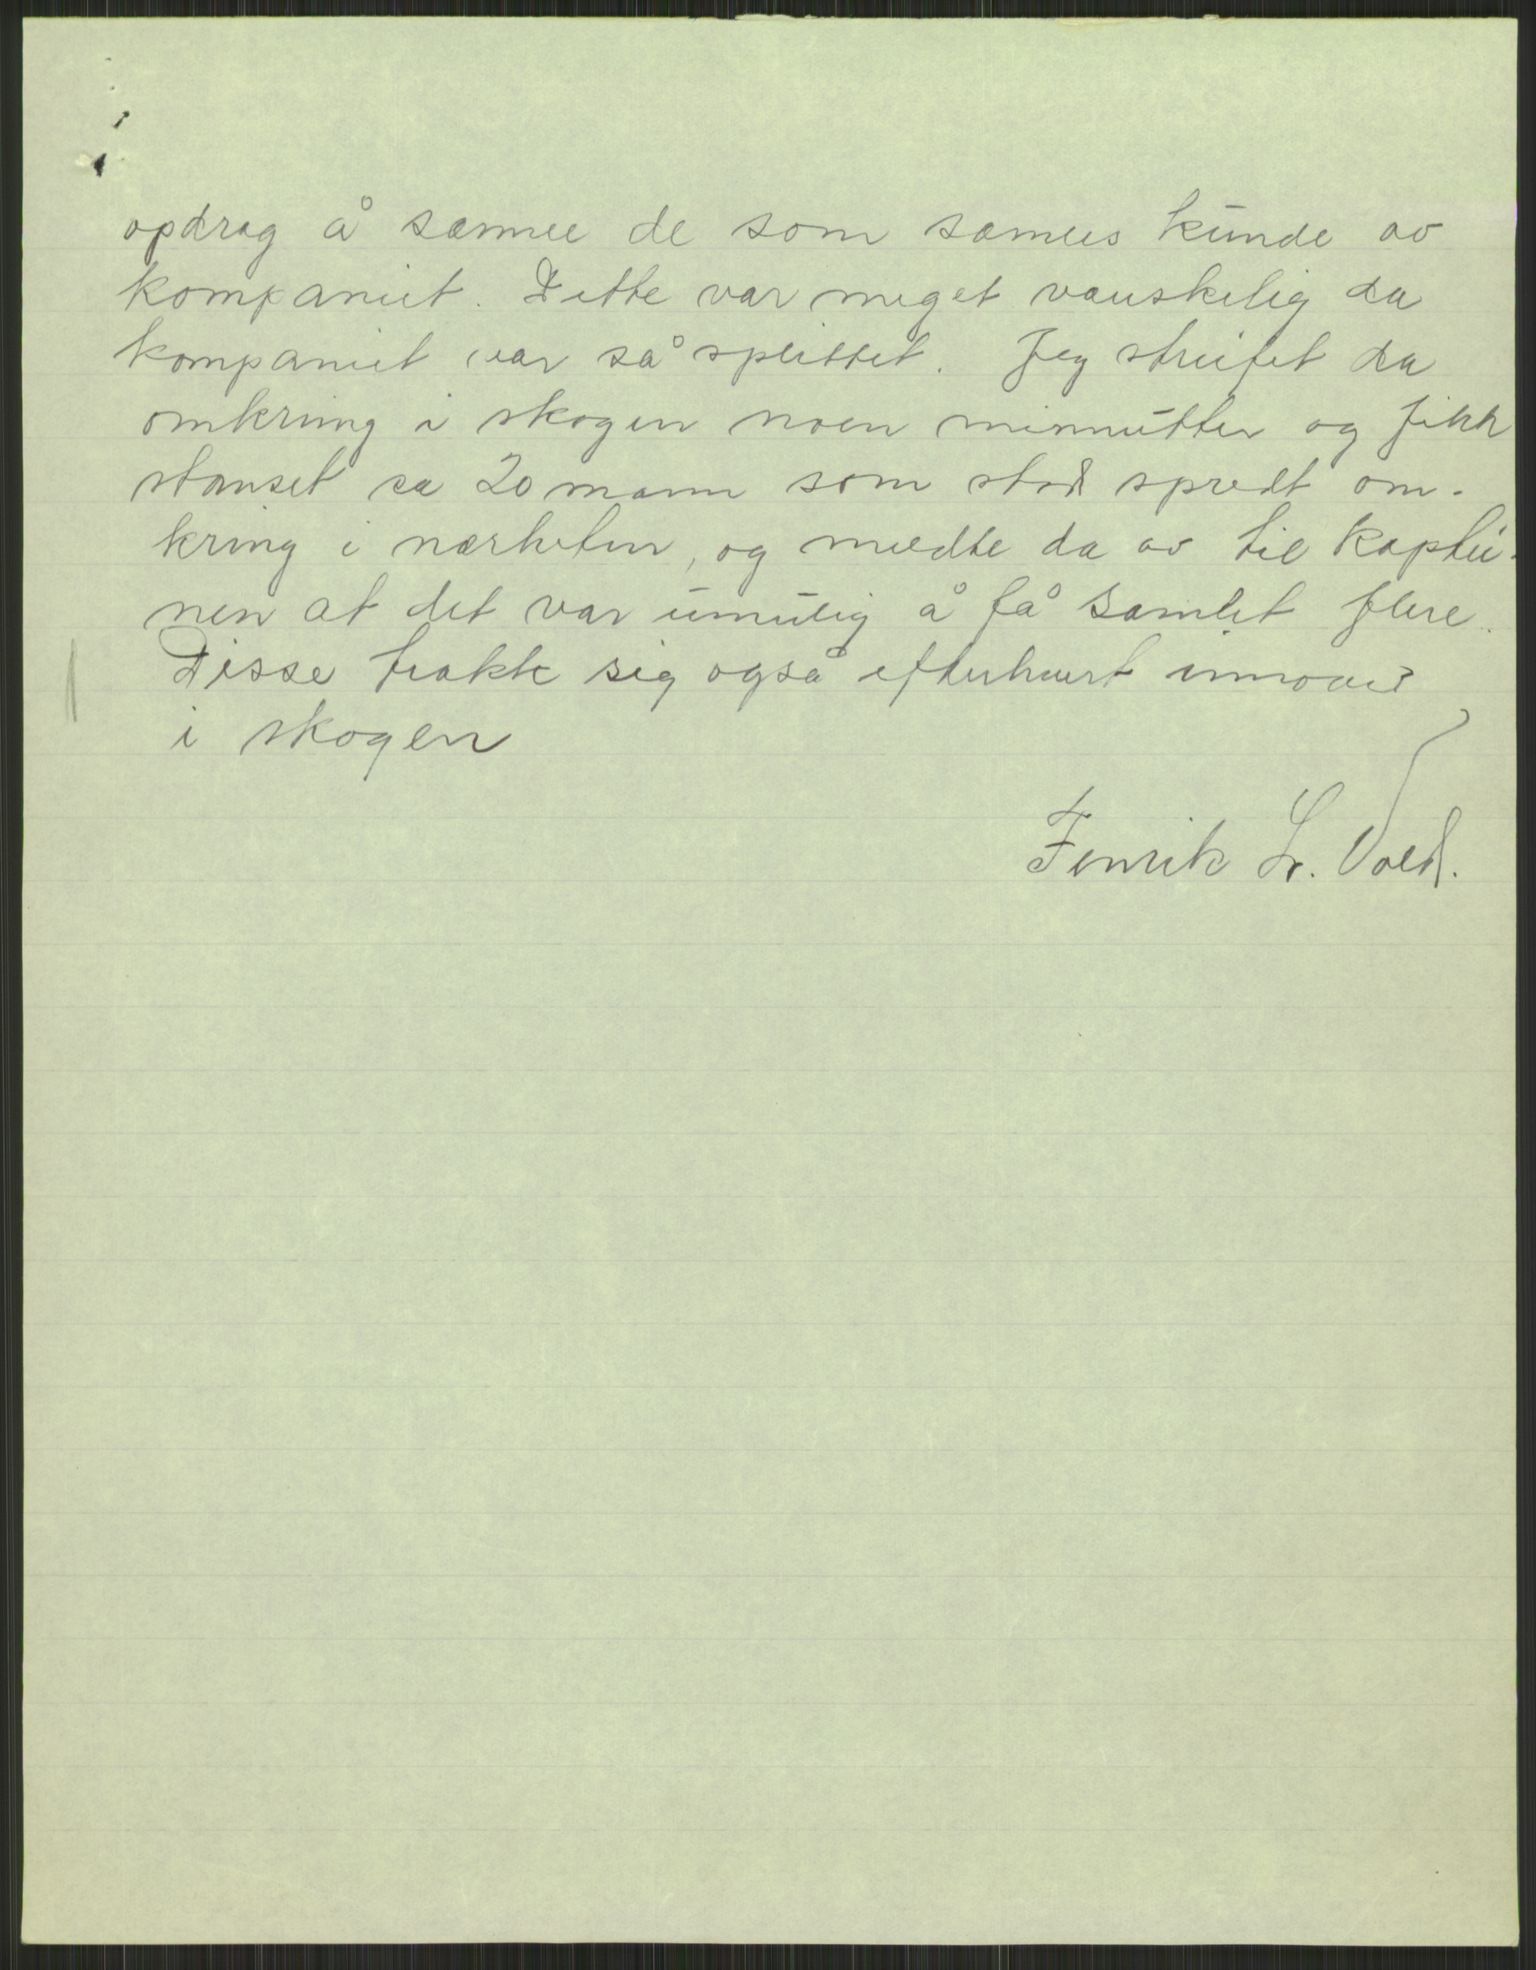 opdrag å samle de som samles kunde av
kompaniet. Dette var meget vanskelig da
kompaniet var så splittet. Jeg streifet da
omkring i skogen noen minnutter og fikk
stanset ca 20 mann som stod spredt om-
kring i nærheten, og meldte da av til kaptei-
nen at det var umulig å få samlet flere.
Disse trakk sig også efterhvert innover
i skogen
Fenrik L. Vold.